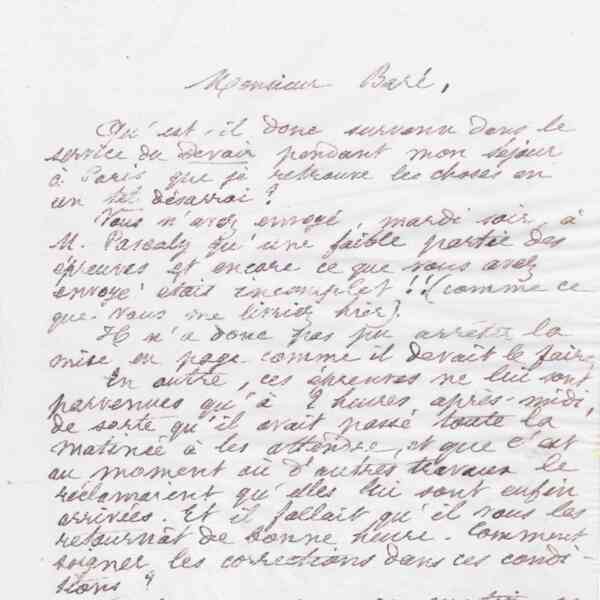 Monsieur Baré,
Qu'est-il donc survenu dans le
service du Devoir pendant mon séjour
à Paris que je retrouve les choses en
un tel désarroi ?
Vous n'avez envoyé, mardi soir, à
M. Pascaly qu'une faible partie des
épreuves et encore ce que vous avez
envoyé était incomplet !! (comme ce
que vous me livriez hier).
Il n'a donc pas pu arrêter la
mise en page comme il devait le faire
En outre, ces épreuves ne lui sont
parvenues qu'à 2 heures après-midi,
de sorte qu'il avait passé toute la
matinée à les attendre, et que c'est
au moment où d'autres travaux le
réclamaient qu'elles lui sont enfin
arrivées. Et il fallait qu'il vous les
retournât de bonne heure. Comment
soigner les corrections dans ces condi-
tions ?